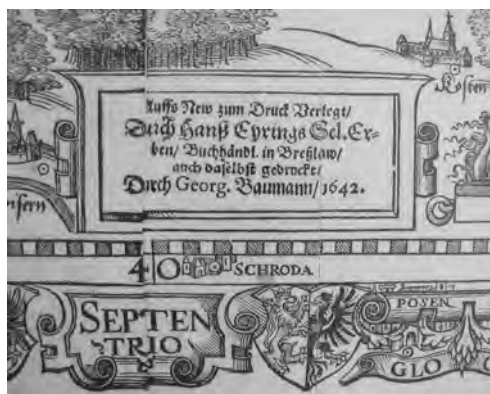 Kosten
Auffs New zum Druck Verlegt/
Durch Hanß Eyrings Sel. Er-
ben/ Buchhändl. in Breßlaw/
auch daselbst gedruckt/
Durch Georg. Baumann/ 1642.
40 SCHRODA
SEPTEN
TRIO
POSEN
GLO